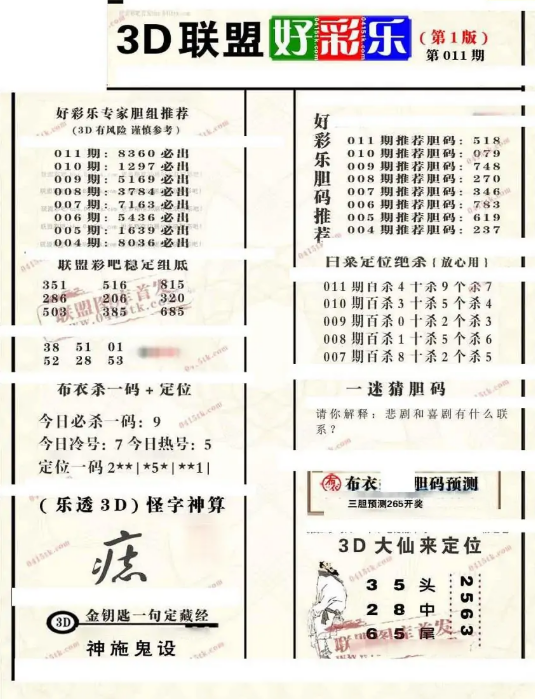 3D联盟好彩乐
(第1版)
第011期
好彩乐专家胆组推荐
(3D有风险 谨慎参考)
011期:8360必出
010期:1297必出
009期:5169必出
008期:3784必出
007期:7163必出
006期:5436必出
005期:1639必出
004期:8036必出
联盟彩吧稳定组底
351 516 815
286 206 320
503 385 685
38 51 01
52 28 53
布衣杀一码+定位
今日必杀一码:9
今日冷号:7 今日热号:5
定位一码2**|*5*|**1|
(乐透3D)怪字神算
3D
金钥匙一句定藏经
神施鬼设
好彩乐胆码推荐
011期推荐胆码:518
010期推荐胆码:079
009期推荐胆码:748
008期推荐胆码:270
007期推荐胆码:346
006期推荐胆码:783
005期推荐胆码:619
004期推荐胆码:237
白菜定位绝杀{放心用}
011期百杀4十杀9个杀7
010期百杀3十杀5个杀4
009期百杀0十杀2个杀3
008期百杀1十杀5个杀6
007期百杀8十杀2个杀5
一迷猜胆码
请你解释:悲剧和喜剧有什么联
系?
布衣 胆码预测
三胆预测265开奖
3D大仙来定位
3 5 头
2 8 中
6 5 尾
2563